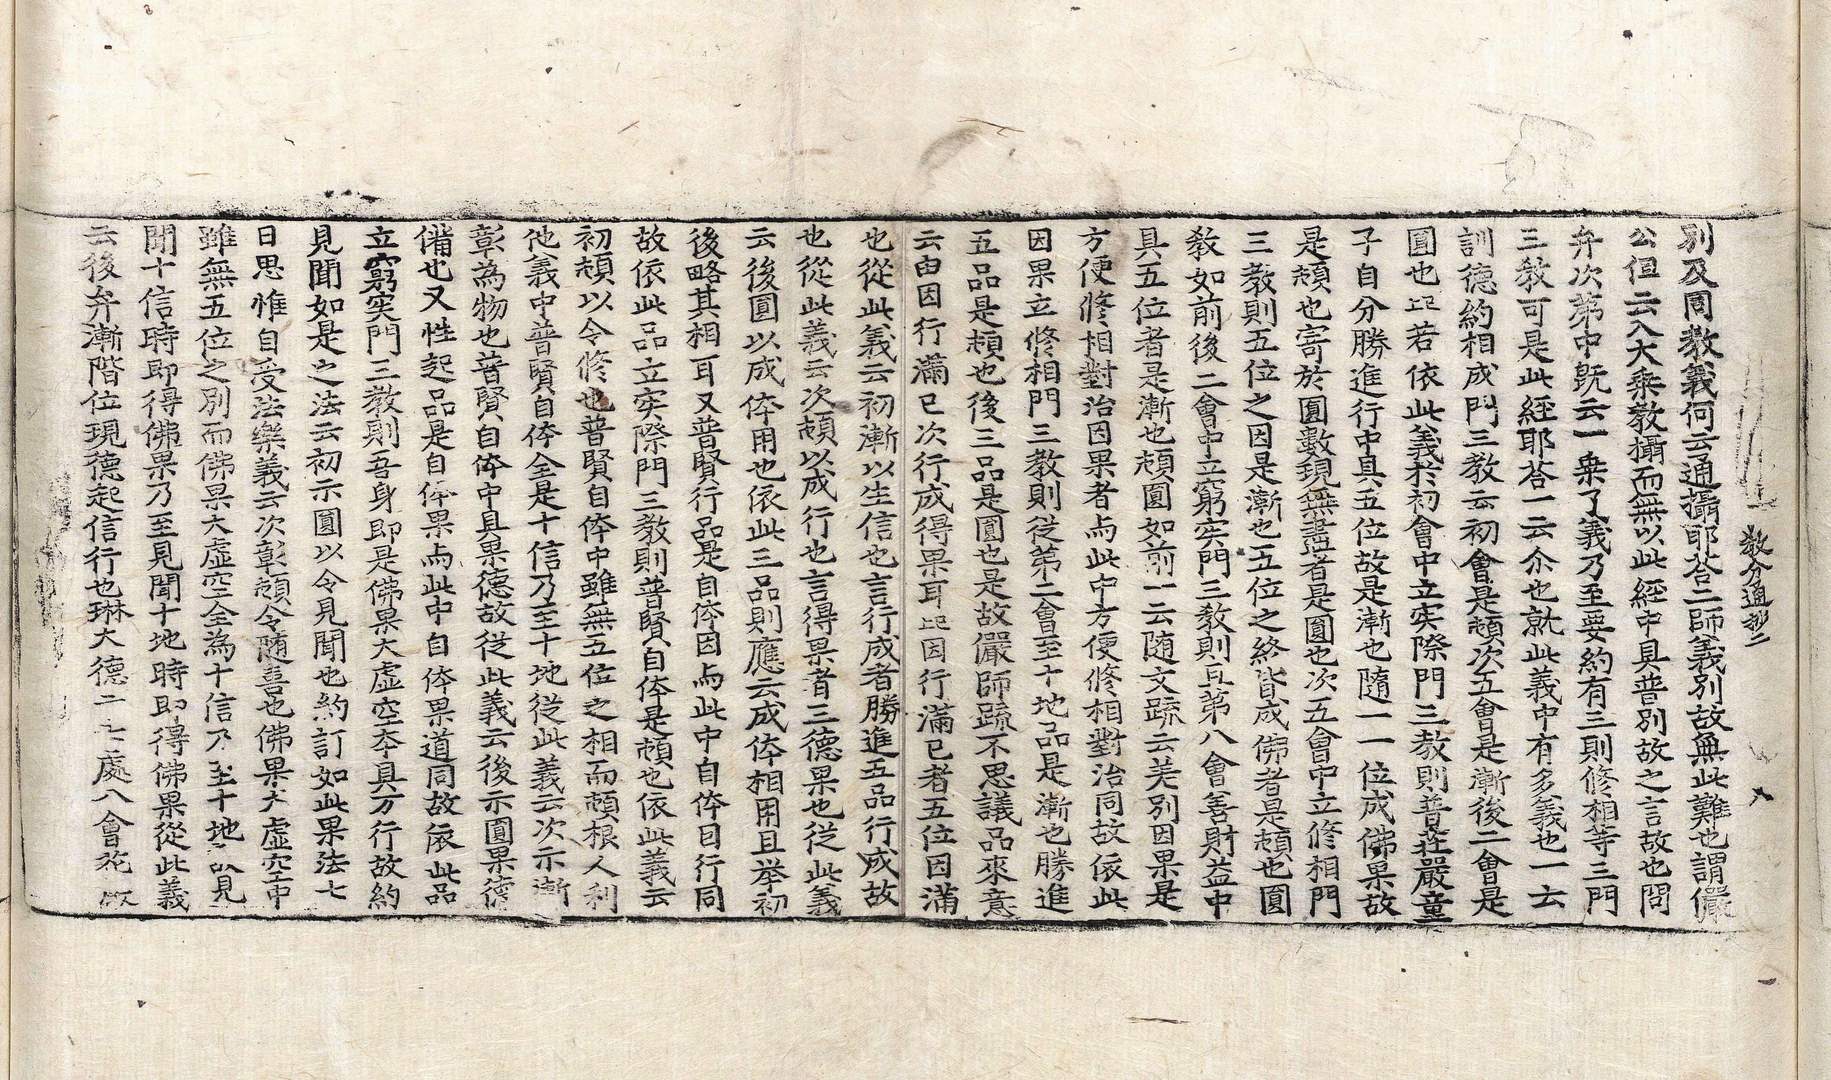 敎分通抄二
別及同教義何云通攝耶荅二師義別故無此難也謂儼
公但云入大乘教攝而無以此經中具普別故之言故也問
弁次第中旣云一乘了義乃至要約有三則修相等三門
三敎可是此經耶荅一云尒也就此義中有多義也一云
訓德約相成門三教云初會是頓次五會是漸後二會是
圓也 若依此義於初會中立实際門三教則普莊嚴童
子自分勝進行中具五位故是漸也隨一一位成佛果故
是頓也寄於圓數現無盡者是圓也次五會中立修相門
三教則五位之因是漸也五位之終皆成佛者是頓也圓
敎如前後二會中立窮实門三教則 第八會善財益中
具五位者是漸也頓圓如前一云随文䟽云差別因果是
方便修相對治因果者 此中方便修相對治同故依此
因果立修相門三教則從第二會至十地品是漸也勝進
五品是頓也後三品是圓也是故儼師䟽不思議品來意
云由因行滿已次行成得果耳 因行滿已者五位因滿
也從此義云初漸以生信也言行成者勝進五品行成故
也從此義云次頓以成行也言得果者三德果也從此義
云後圓以成体用也依此三品則應云成体相用且举初
後略其相耳又普賢行品是自体因 此中自体因行同
故依此品立实際門三教則普賢自体是頓也依此義云
初頓以令修也普賢自体中雖無五位之相而頓根人利
他義中普賢自体全是十信乃至十地從此義云次示漸
彰為物也普賢自体中具果德故從此義云後示圓果德
備也又性起品是自体果 此中自体果道同故依此品
立窮实門三教則吾身即是佛果大虛空夲具万行故約
見聞如是之法云初示圓以令見聞也約訂如此果法七
日思惟自受法樂義云次彰頓令随喜也佛果大虛空中
雖無五位之別而佛果大虛空全為十信乃至十地 見
聞十信時即得佛果乃至見聞十地時即得佛果從此義
云後弁漸階位現德起信行也琳大德二 七處八會花